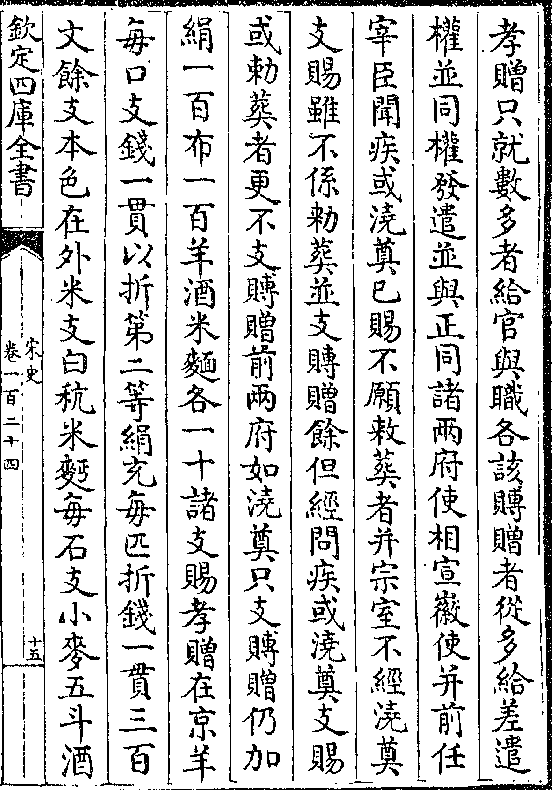 孝贈只就數多者給官與職各該賻贈者從多給差遣
權並同權發遣並與正同諸兩府使相宣徽使并前任
宰臣聞疾或澆奠已賜不願敕葬者并宗室不經澆奠
支賜雖不係勅葬並支賻贈餘但經問疾或澆奠支賜
或勅葬者更不支賻贈前兩府如澆奠只支賻贈仍加
絹一百布一百羊酒米麵各一十諸支賜孝贈在京羊
每口支錢一貫以折第二等絹充每匹折錢一貫三百
文餘支本色在外米支白秔米麫每石支小麥五斗酒
欽定四庫全書
宋史
卷一百二十四
十五